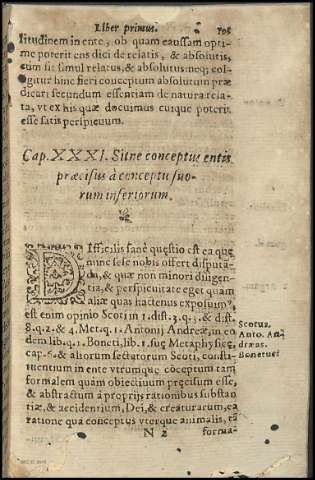 Liber primus. 195
litudinem in ente, ob quam caussam opti-
me poterit ens dici de relatis, & absolutis,
cum sit simul relatus, & absolutus: neq; col-
ligitur hinc fieri conceptum absolutum præ
dicari secundum essentiam de natura rela-
ta, vt ex his quæ docuimus cuique poterit
esse satis perspicuum.
Cap. XXXI. Sitne conceptus entis
præcisus à conceptu suo-
rum inferiorum.
DIfficilis sanè quęstio est ea quę
nunc sese nobis offert disputā-
da, & quæ non minori diligen-
tia, & perspicuitate eget quam
aliæ quas hactenus exposuim9,
est enim opinio Scoti in 1. dist. 3. q. 1. & dist.
8. q. 2. & 4. Met. q. 1. Antonij Andreæ, in eo
dem lib. q. 1. Boneti, lib. 1. suę Metaphysicę,
cap. 6. & aliorum sectatorum Scoti, consti-
tuentium in ente vtrumque cōceptum tam
formalem quàm obiectiuum pręcisum esse,
& abstractum à proprijs rationibus substan
tiæ, & accidentium, Dei, & creaturarum, ea
ratione qua conceptus vterque animalis, tā
N 2 forma-
Scotus.
Anto. An
dræas.
Bonetus